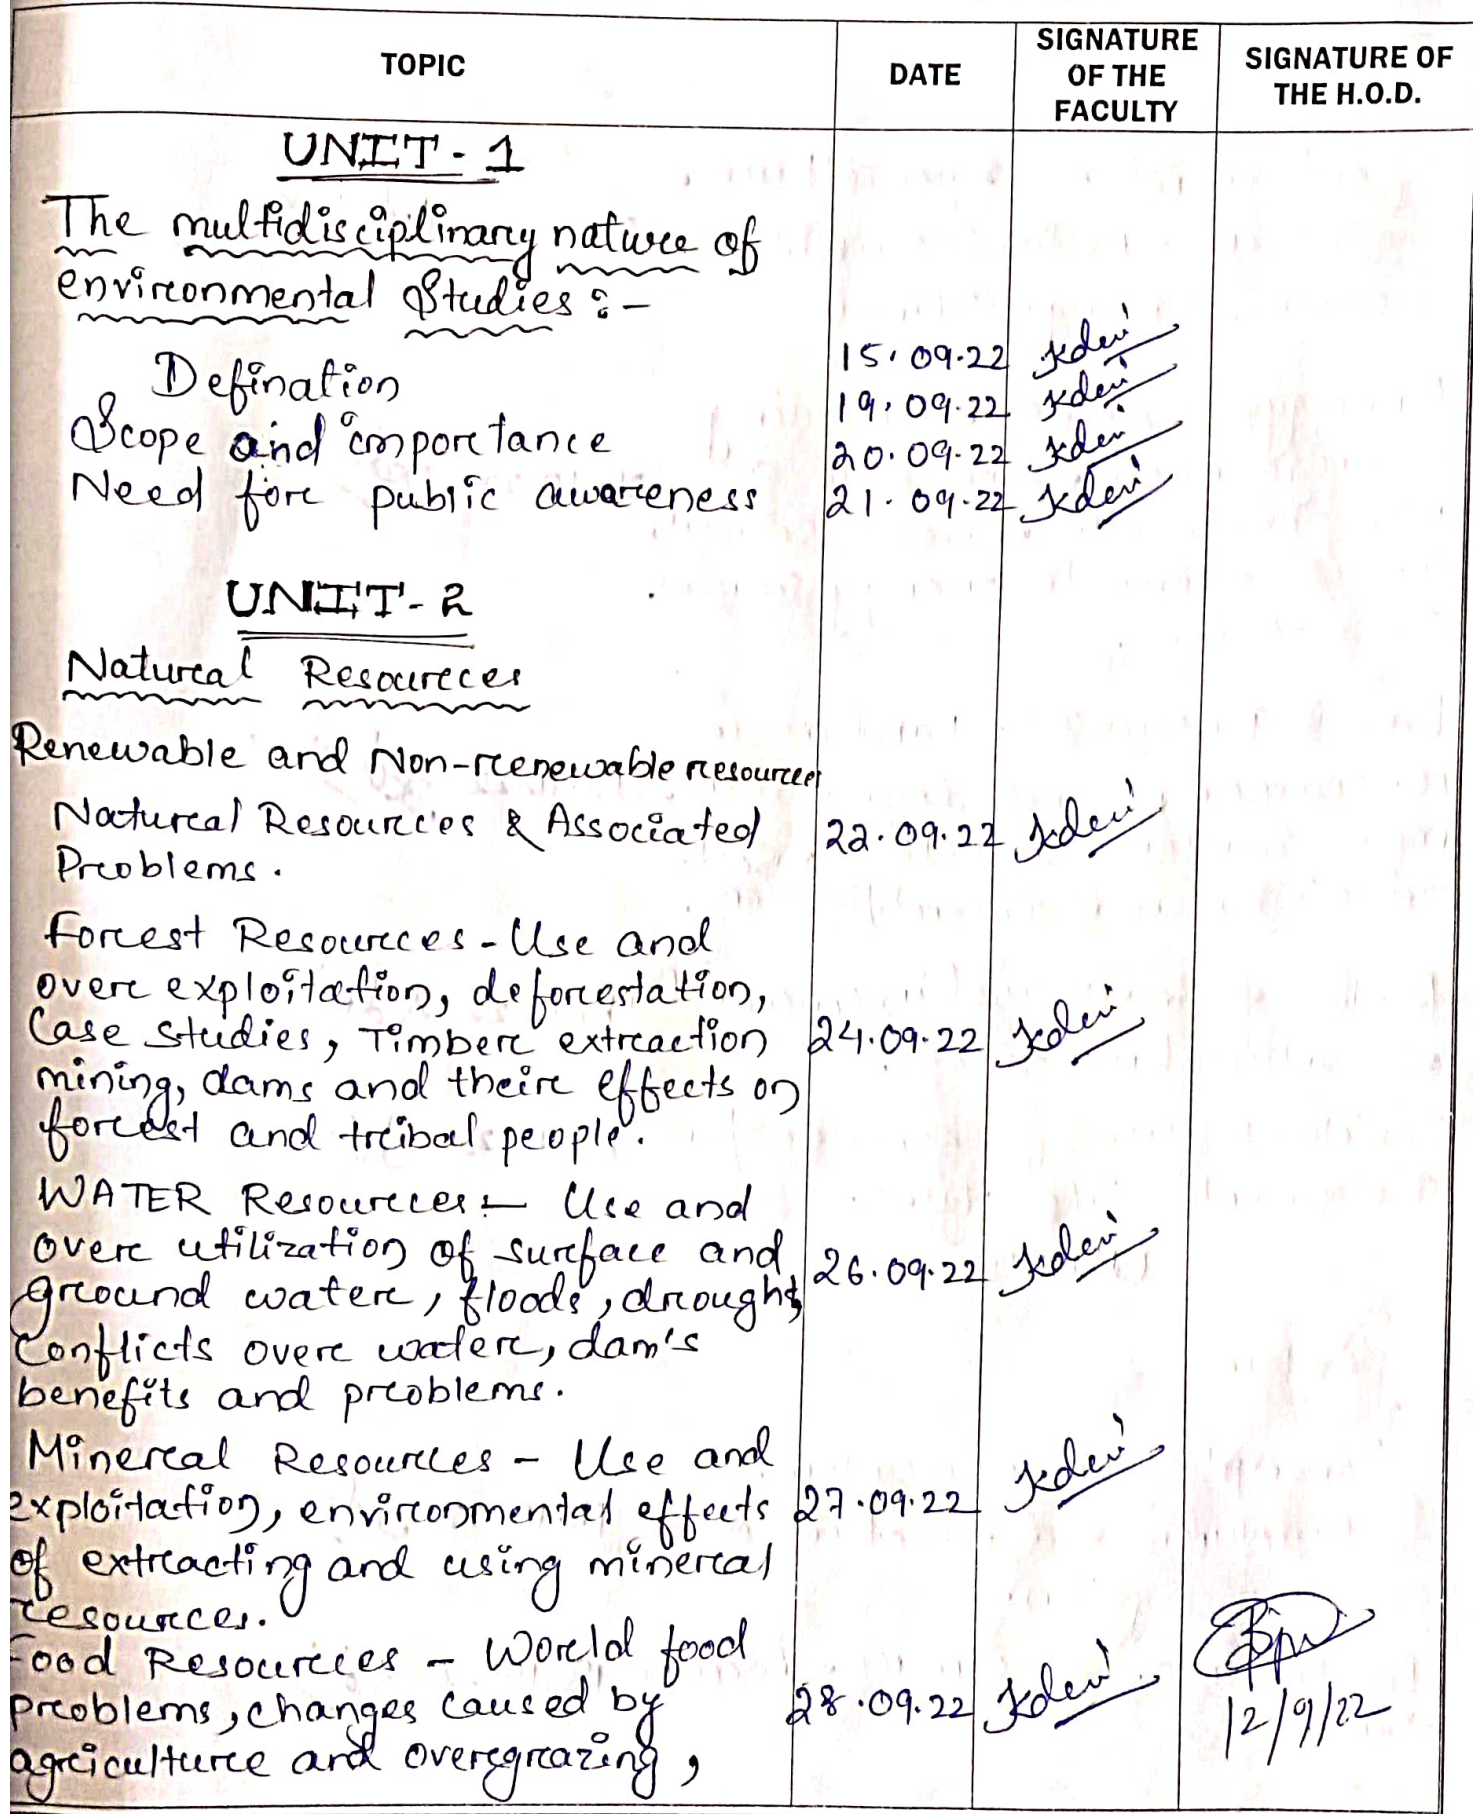 TOPIC DATE SIGNATURE OF THE FACULTY SIGNATURE OF THE H.O.D.
UNIT-1
The multidisciplinary nature of
environmental Studies :-
Defination 15.09.22 Kdevi
19.09.22 Kdevi
Scope and importance 20.09.22 Kdevi
Need for public awareness 21.09.22 Kdevi
UNIT-2
Natural Resources
Renewable and Non-renewable resources
Natural Resources & Associated 22.09.22 Kdevi
Problems.
Forest Resources - Use and
over exploitation, deforestation,
Case Studies, Timber extraction 24.09.22 Kdevi
mining, dams and their effects on
forest and tribal people.
WATER Resources :- Use and
over utilization of surface and 26.09.22 Kdevi
ground water, floods, drought,
Conflicts over water, dam's
benefits and problems.
Mineral Resources - Use and
exploitation, environmental effects 27.09.22 Kdevi
of extracting and using mineral
resources.
Food Resources - World food
problems, changes caused by 28.09.22 Kdevi 12/9/22
agriculture and overgrazing,